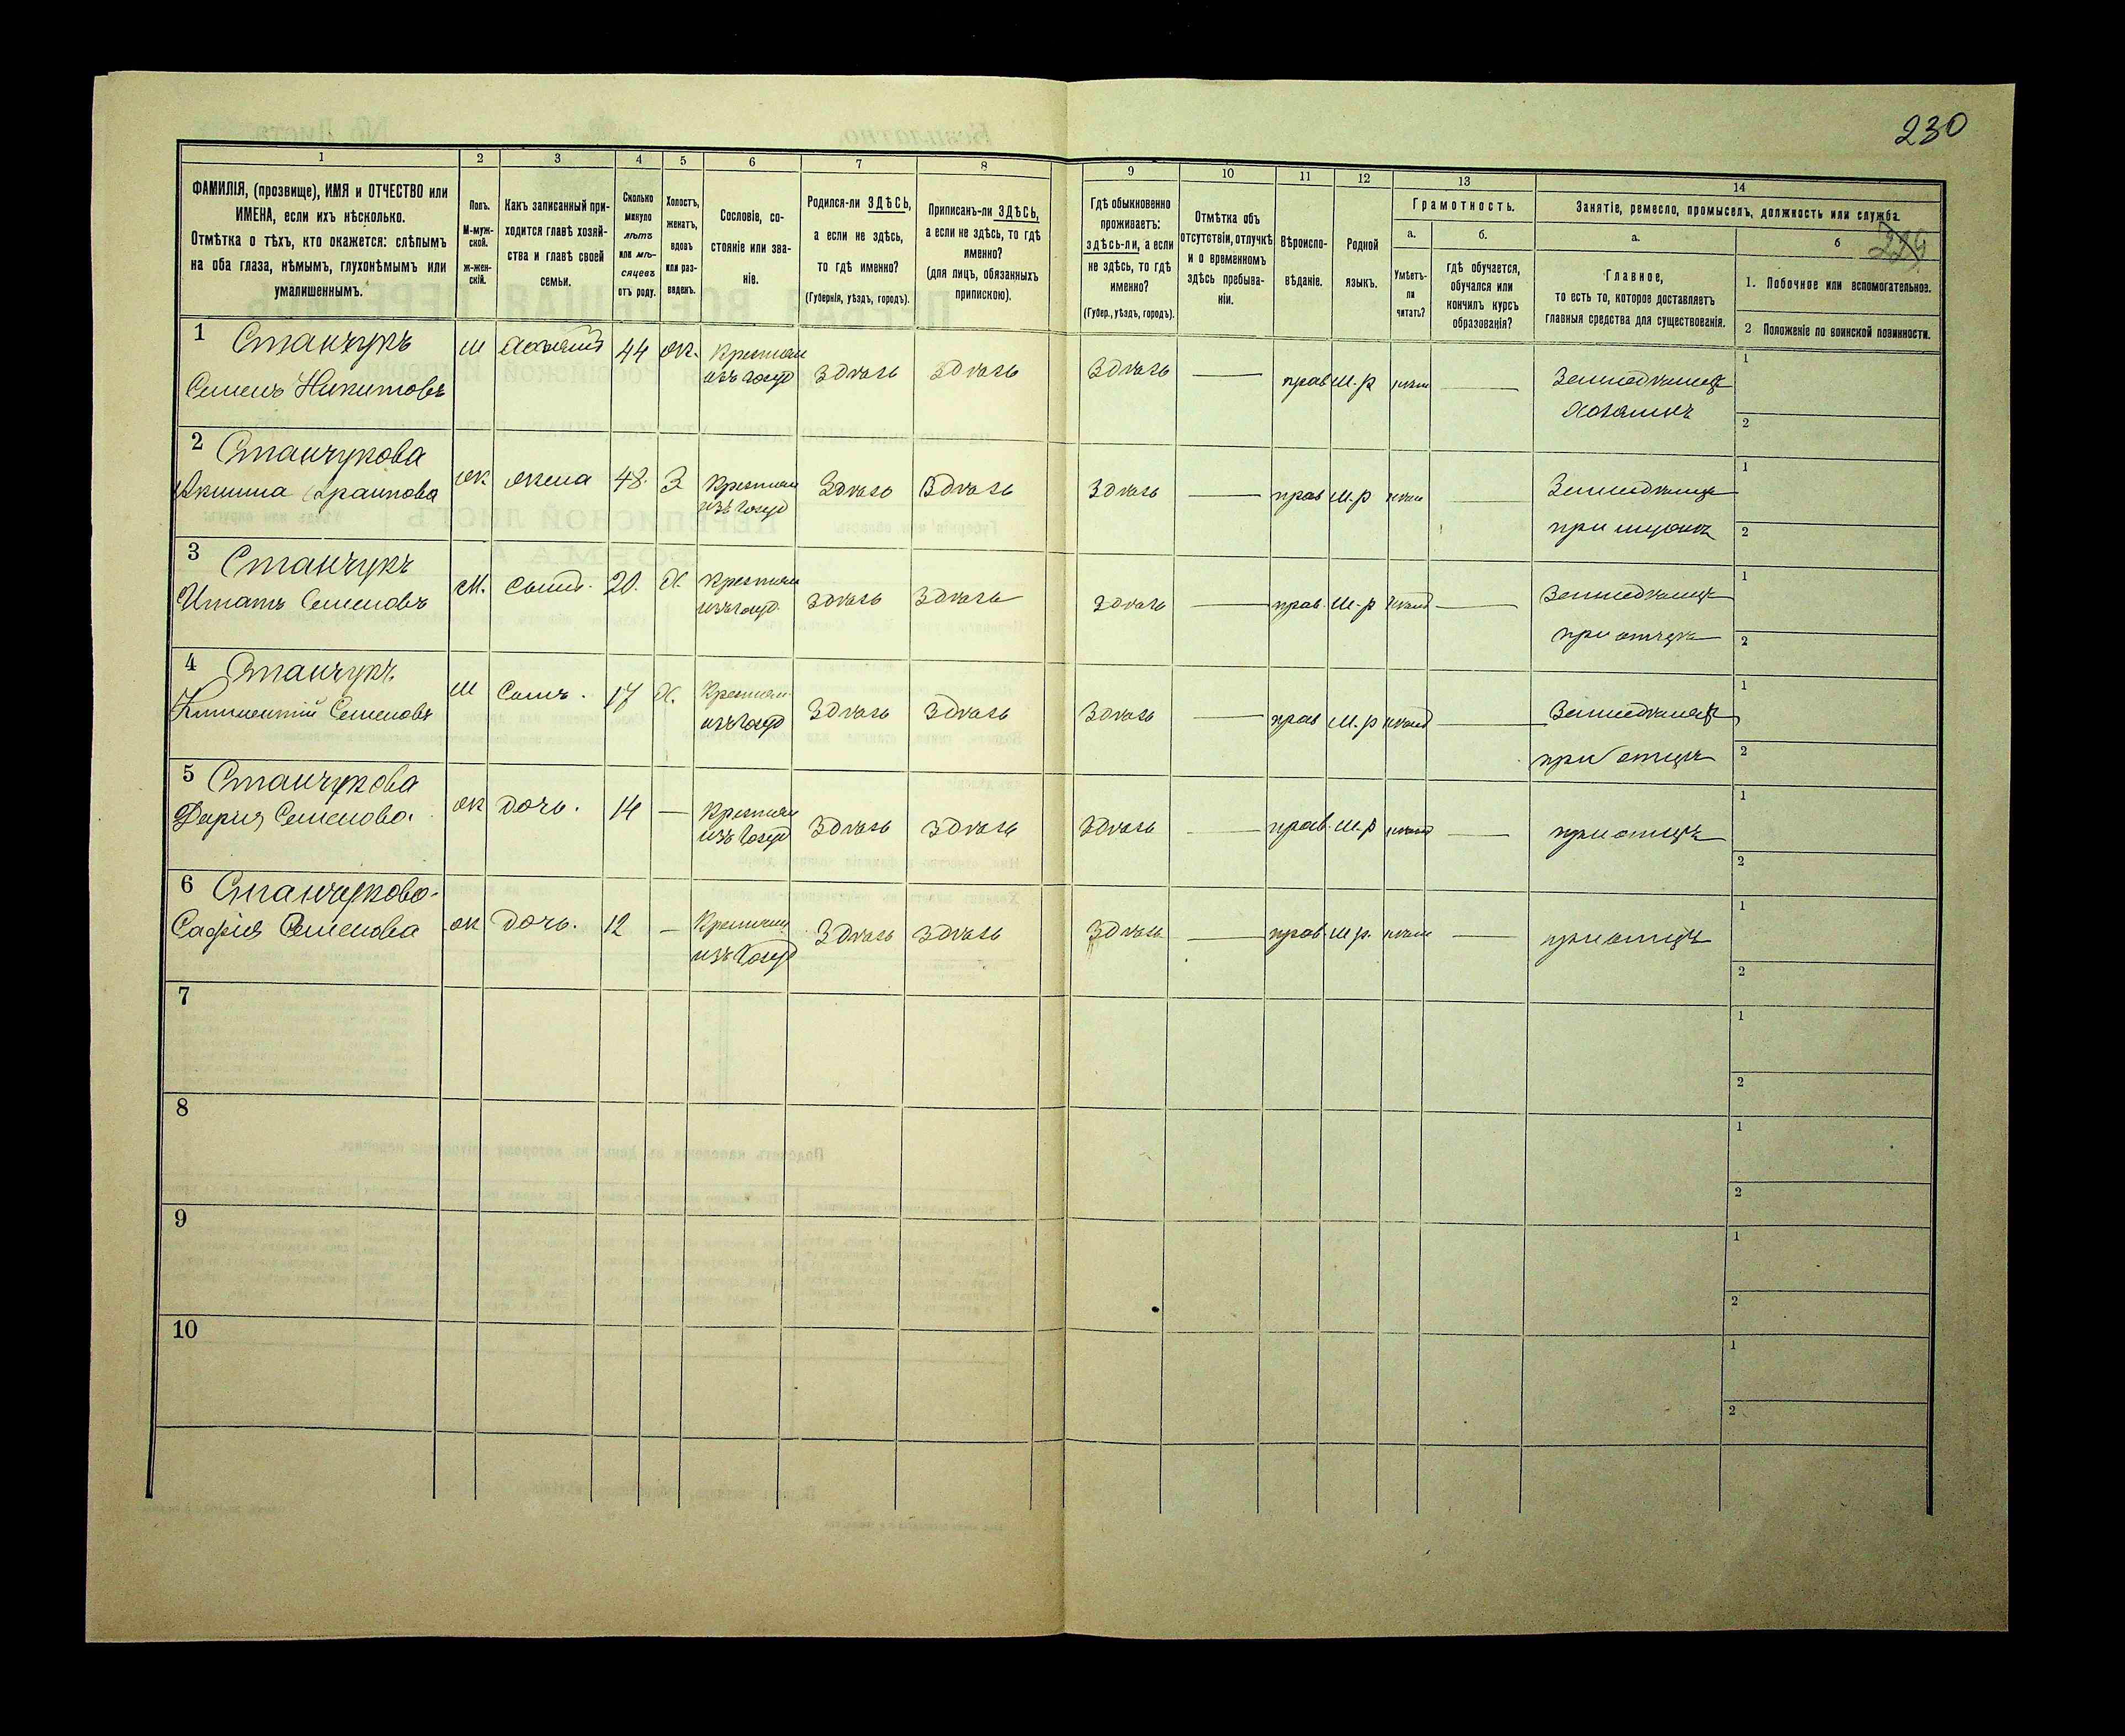 230
1
2
3
4
5
6
7
8
9
10
11
12
13
14
ФАМИЛІЯ, (прозвище), ИМЯ и ОТЧЕСТВО или
ИМЕНА, если ихъ нѣсколько.
Отмѣтка о тѣхъ, кто окажется: слѣпымъ
на оба глаза, нѣмымъ, глухонѣмымъ или
умалишеннымъ.
Полъ.
М-муж-
ской.
ж-жен-
скій.
Какъ записанный при-
ходится главѣ хозяй-
ства и главѣ своей
семьи.
Сколько
минуло
лѣтъ
или мѣ-
сяцевъ
отъ роду.
Холостъ,
женатъ,
вдовъ
или раз-
веденъ.
Сословіе, со-
стояніе или зва-
ніе.
Родился-ли ЗДѢСЬ,
а если не здѣсь,
то гдѣ именно?
(Губернія, уѣздъ, городъ).
Приписанъ-ли ЗДѢСЬ,
а если не здѣсь, то гдѣ
именно?
(для лицъ, обязанныхъ
припискою).
Гдѣ обыкновенно
проживаетъ:
здѣсь-ли, а если
не здѣсь, то гдѣ
именно?
(Губер., уѣздъ, городъ).
Отмѣтка объ
отсутствіи, отлучкѣ
и о временномъ
здѣсь пребыва-
ніи.
Вѣроиспо-
вѣданіе.
Родной
языкъ.
Грамотность.
а.
Умѣетъ-
ли
читать?
б.
гдѣ обучается,
обучался или
кончилъ курсъ
образованія?
Занятіе, ремесло, промыселъ, должность или служба.
а.
Главное,
то есть то, которое доставляетъ
главныя средства для существованія.
б
1. Побочное или вспомогательное.
2 Положеніе по воинской повинности.
1 Станчукъ
Семенъ Никитовъ
м
хозяинъ
44
ж.
Крестьян
изъ госуд
здѣсь
здѣсь
здѣсь
прав
м.р
нѣтъ
Земледѣлецъ
хозяинъ
1
2
2 Станчукова
ж
жена
48.
З
Крестьян
изъ госуд
здѣсь
здѣсь
здѣсь
прав
м.р
нѣтъ
Земледѣлецъ
при мужѣ
1
2
3 Станчукъ
Игнатъ Семеновъ
М.
сынъ.
20.
Х.
Крестьян
изъ госуд.
здѣсь
здѣсь
здѣсь
прав.
м-р
нѣтъ
Земледѣлецъ
при отцѣ
1
2
4 Станчукъ
Климентій Семеновъ
м
сынъ.
17
Х.
Крестьян
изъ госуд
здѣсь
здѣсь
здѣсь
прав
м.р
нѣтъ
Земледѣлецъ
при отцѣ
1
2
5 Станчукова
Дарія Семенова.
ж
дочь.
14
—
Крестьян
изъ госуд
здѣсь
здѣсь
здѣсь
прав.
м-р
нѣтъ
при отцѣ
1
2
6 Станчукова
Софія Семенова
ж
дочь.
12
—
Крестьян
изъ госуд
здѣсь
здѣсь
здѣсь
прав.
м р.
нѣтъ
при отцѣ
1
2
7
1
2
8
1
2
9
1
2
10
1
2